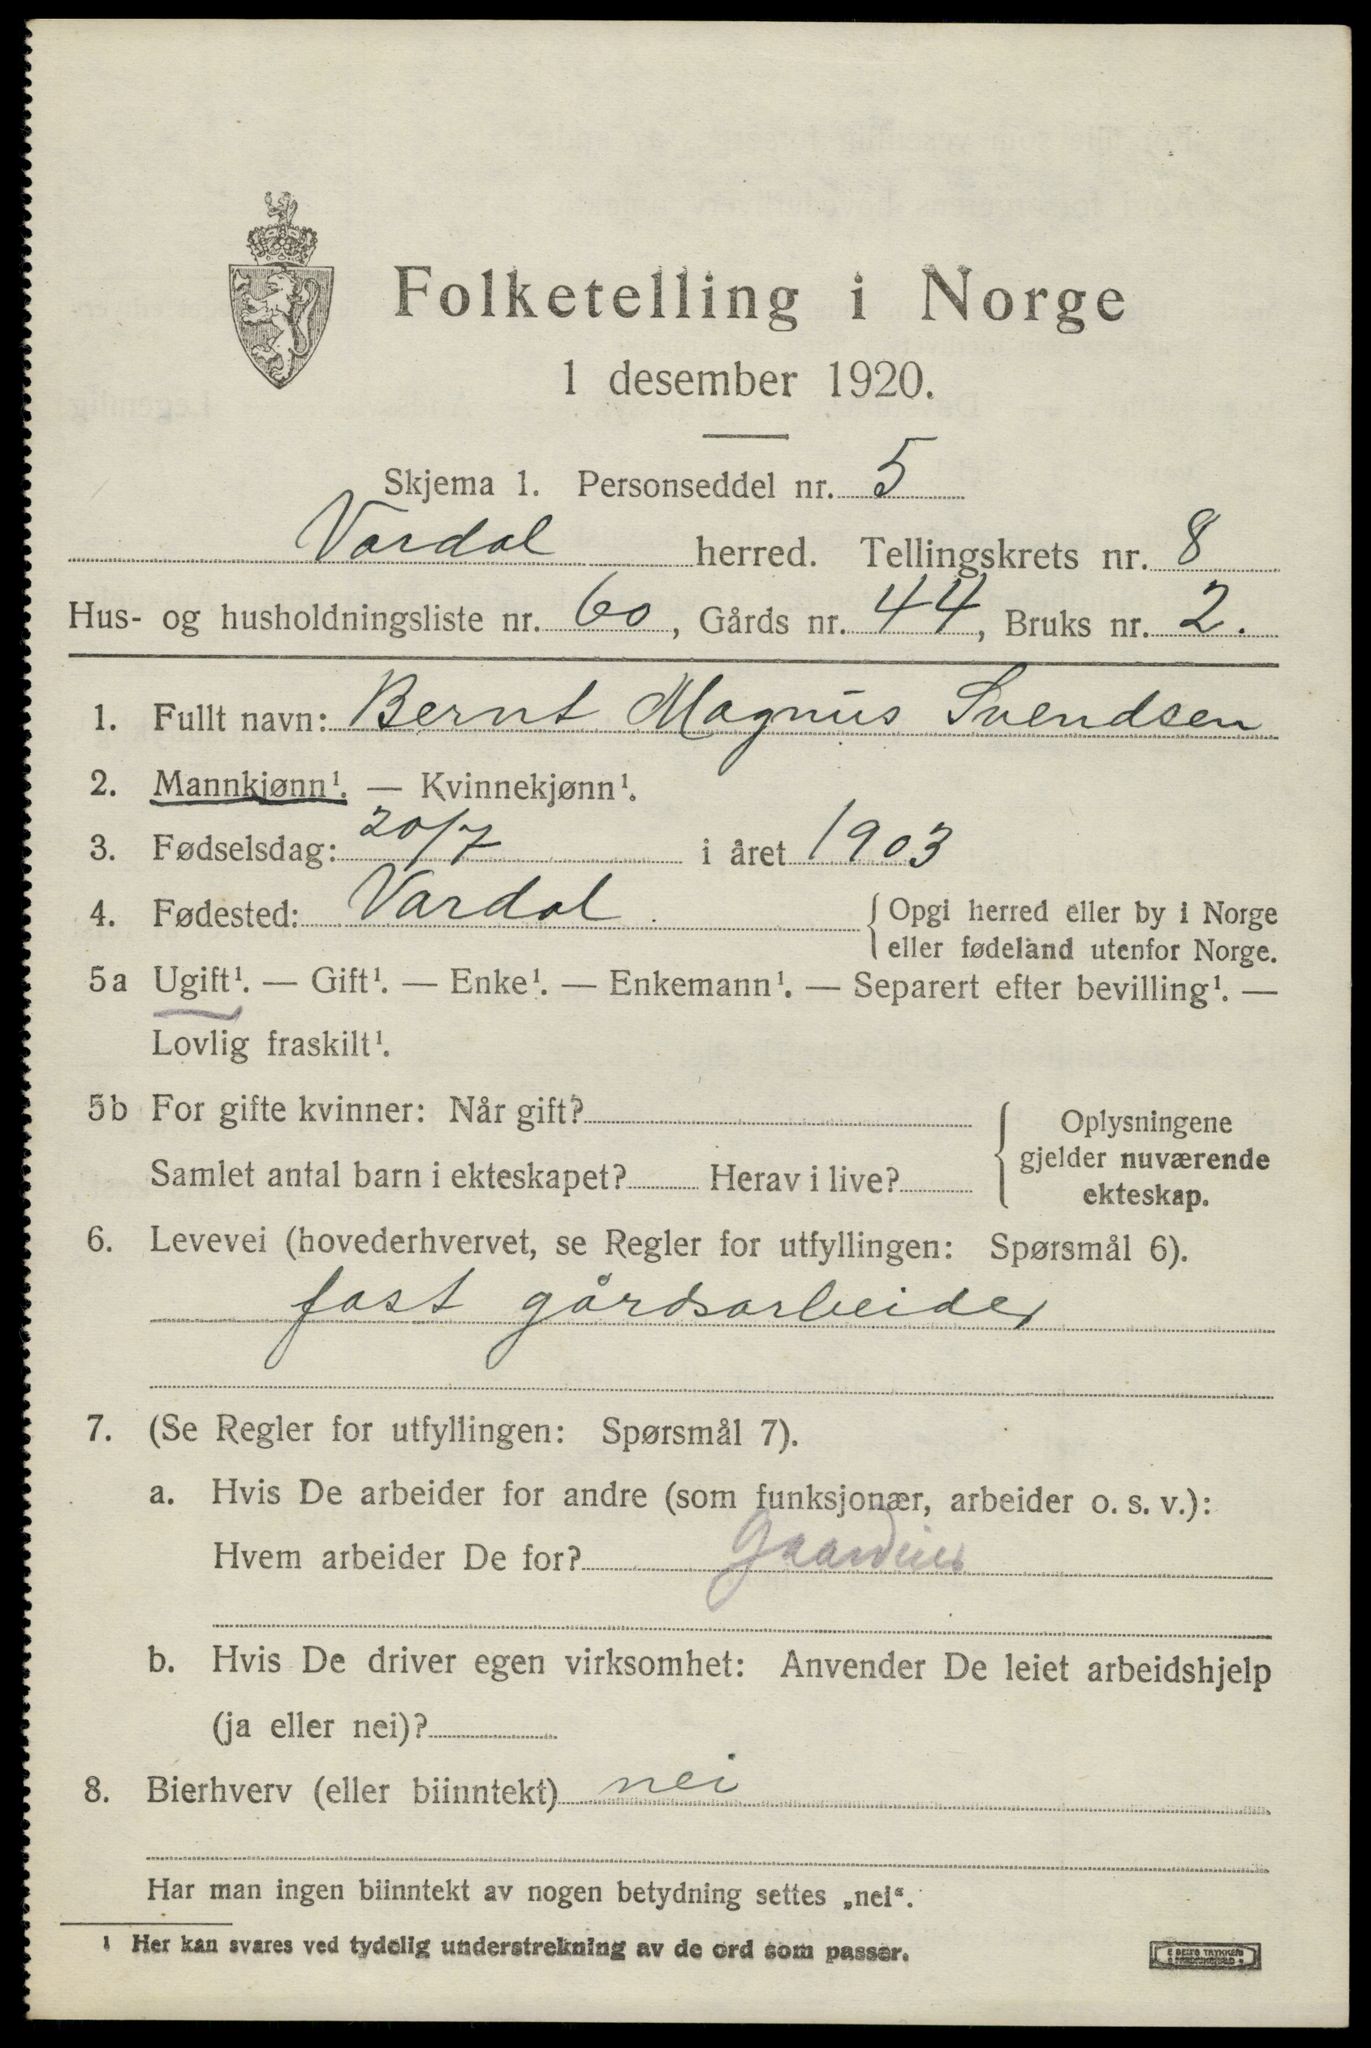 Folketelling i Norge
1 desember 1920.
Skjema 1. Personseddel nr. 5
Vardal herred. Tellingskrets nr. 8
Hus- og husholdningsliste nr. 60, Gårds nr. 44, Bruks nr. 2.
1. Fullt navn: Bernt Magnus Svendsen
2. Mannkjønn¹. — Kvinnekjønn¹.
3. Fødselsdag: 20/7 i året 1903
4. Fødested: Vardal { Opgi herred eller by i Norge
eller fødeland utenfor Norge.
5a Ugift¹. — Gift¹. — Enke¹. — Enkemann¹. — Separert efter bevilling¹. —
Lovlig fraskilt¹.
5b For gifte kvinner: Når gift?
Samlet antal barn i ekteskapet? Herav i live?
Oplysningene
gjelder nuværende
ekteskap.
6. Levevei (hovederhvervet, se Regler for utfyllingen: Spørsmål 6).
fast gårdsarbeider
7. (Se Regler for utfyllingen: Spørsmål 7).
a. Hvis De arbeider for andre (som funksjonær, arbeider o. s. v.):
Hvem arbeider De for?
b. Hvis De driver egen virksomhet: Anvender De leiet arbeidshjelp
(ja eller nei)?
8. Bierhverv (eller biinntekt) nei
Har man ingen biinntekt av nogen betydning settes „nei“.
¹ Her kan svares ved tydelig understrekning av de ord som passer.